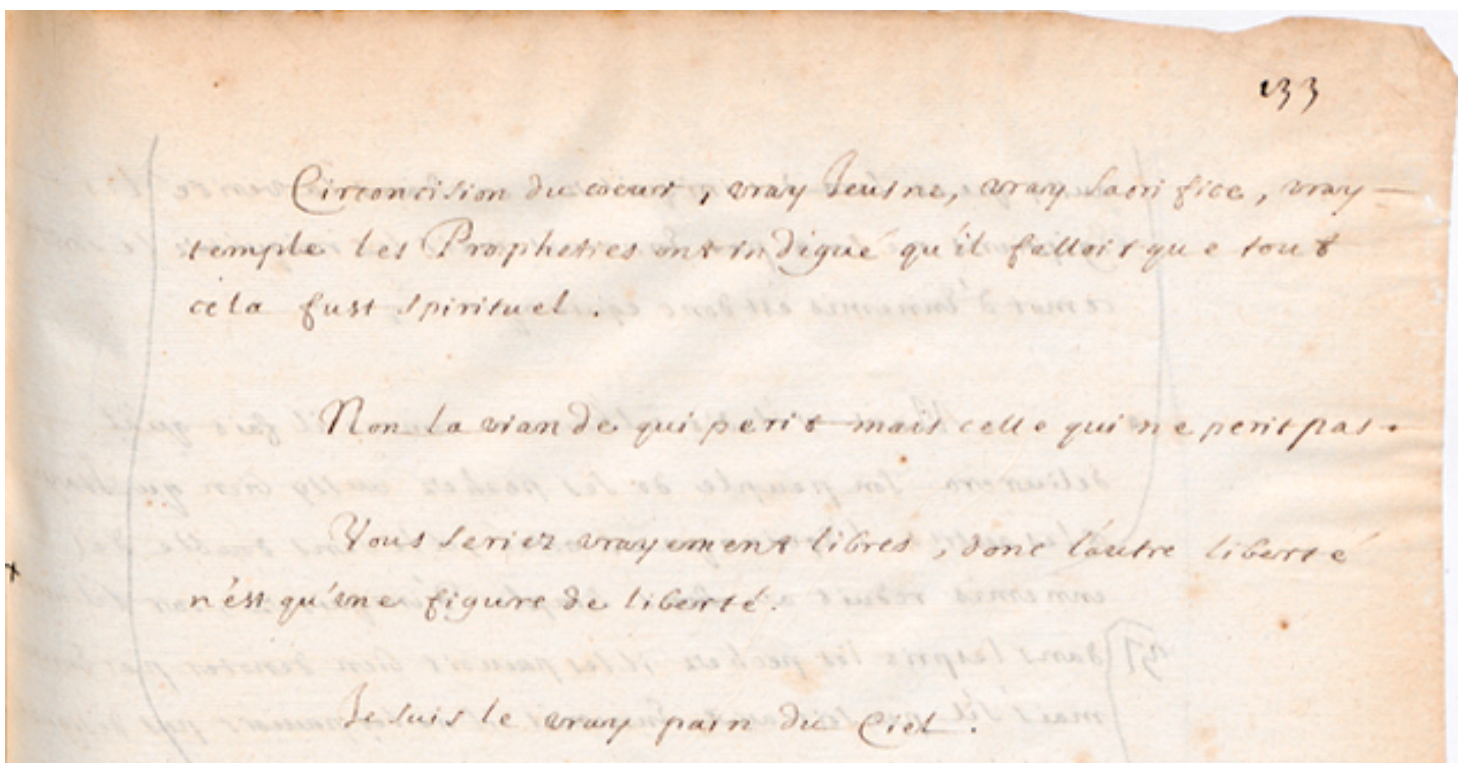 133
Circoncision du coeur, vray Jeusne, vray sacrifice, vray
temple les Propheties ont indiqué qu'il falloit que tout
cela fust spirituel.
Non la viande qui perit mais celle qui ne perit pas.
Vous seriez vrayement libres, donc l'autre liberté
n'est qu'une figure de liberté.
Je suis le vray pain du Ciel.